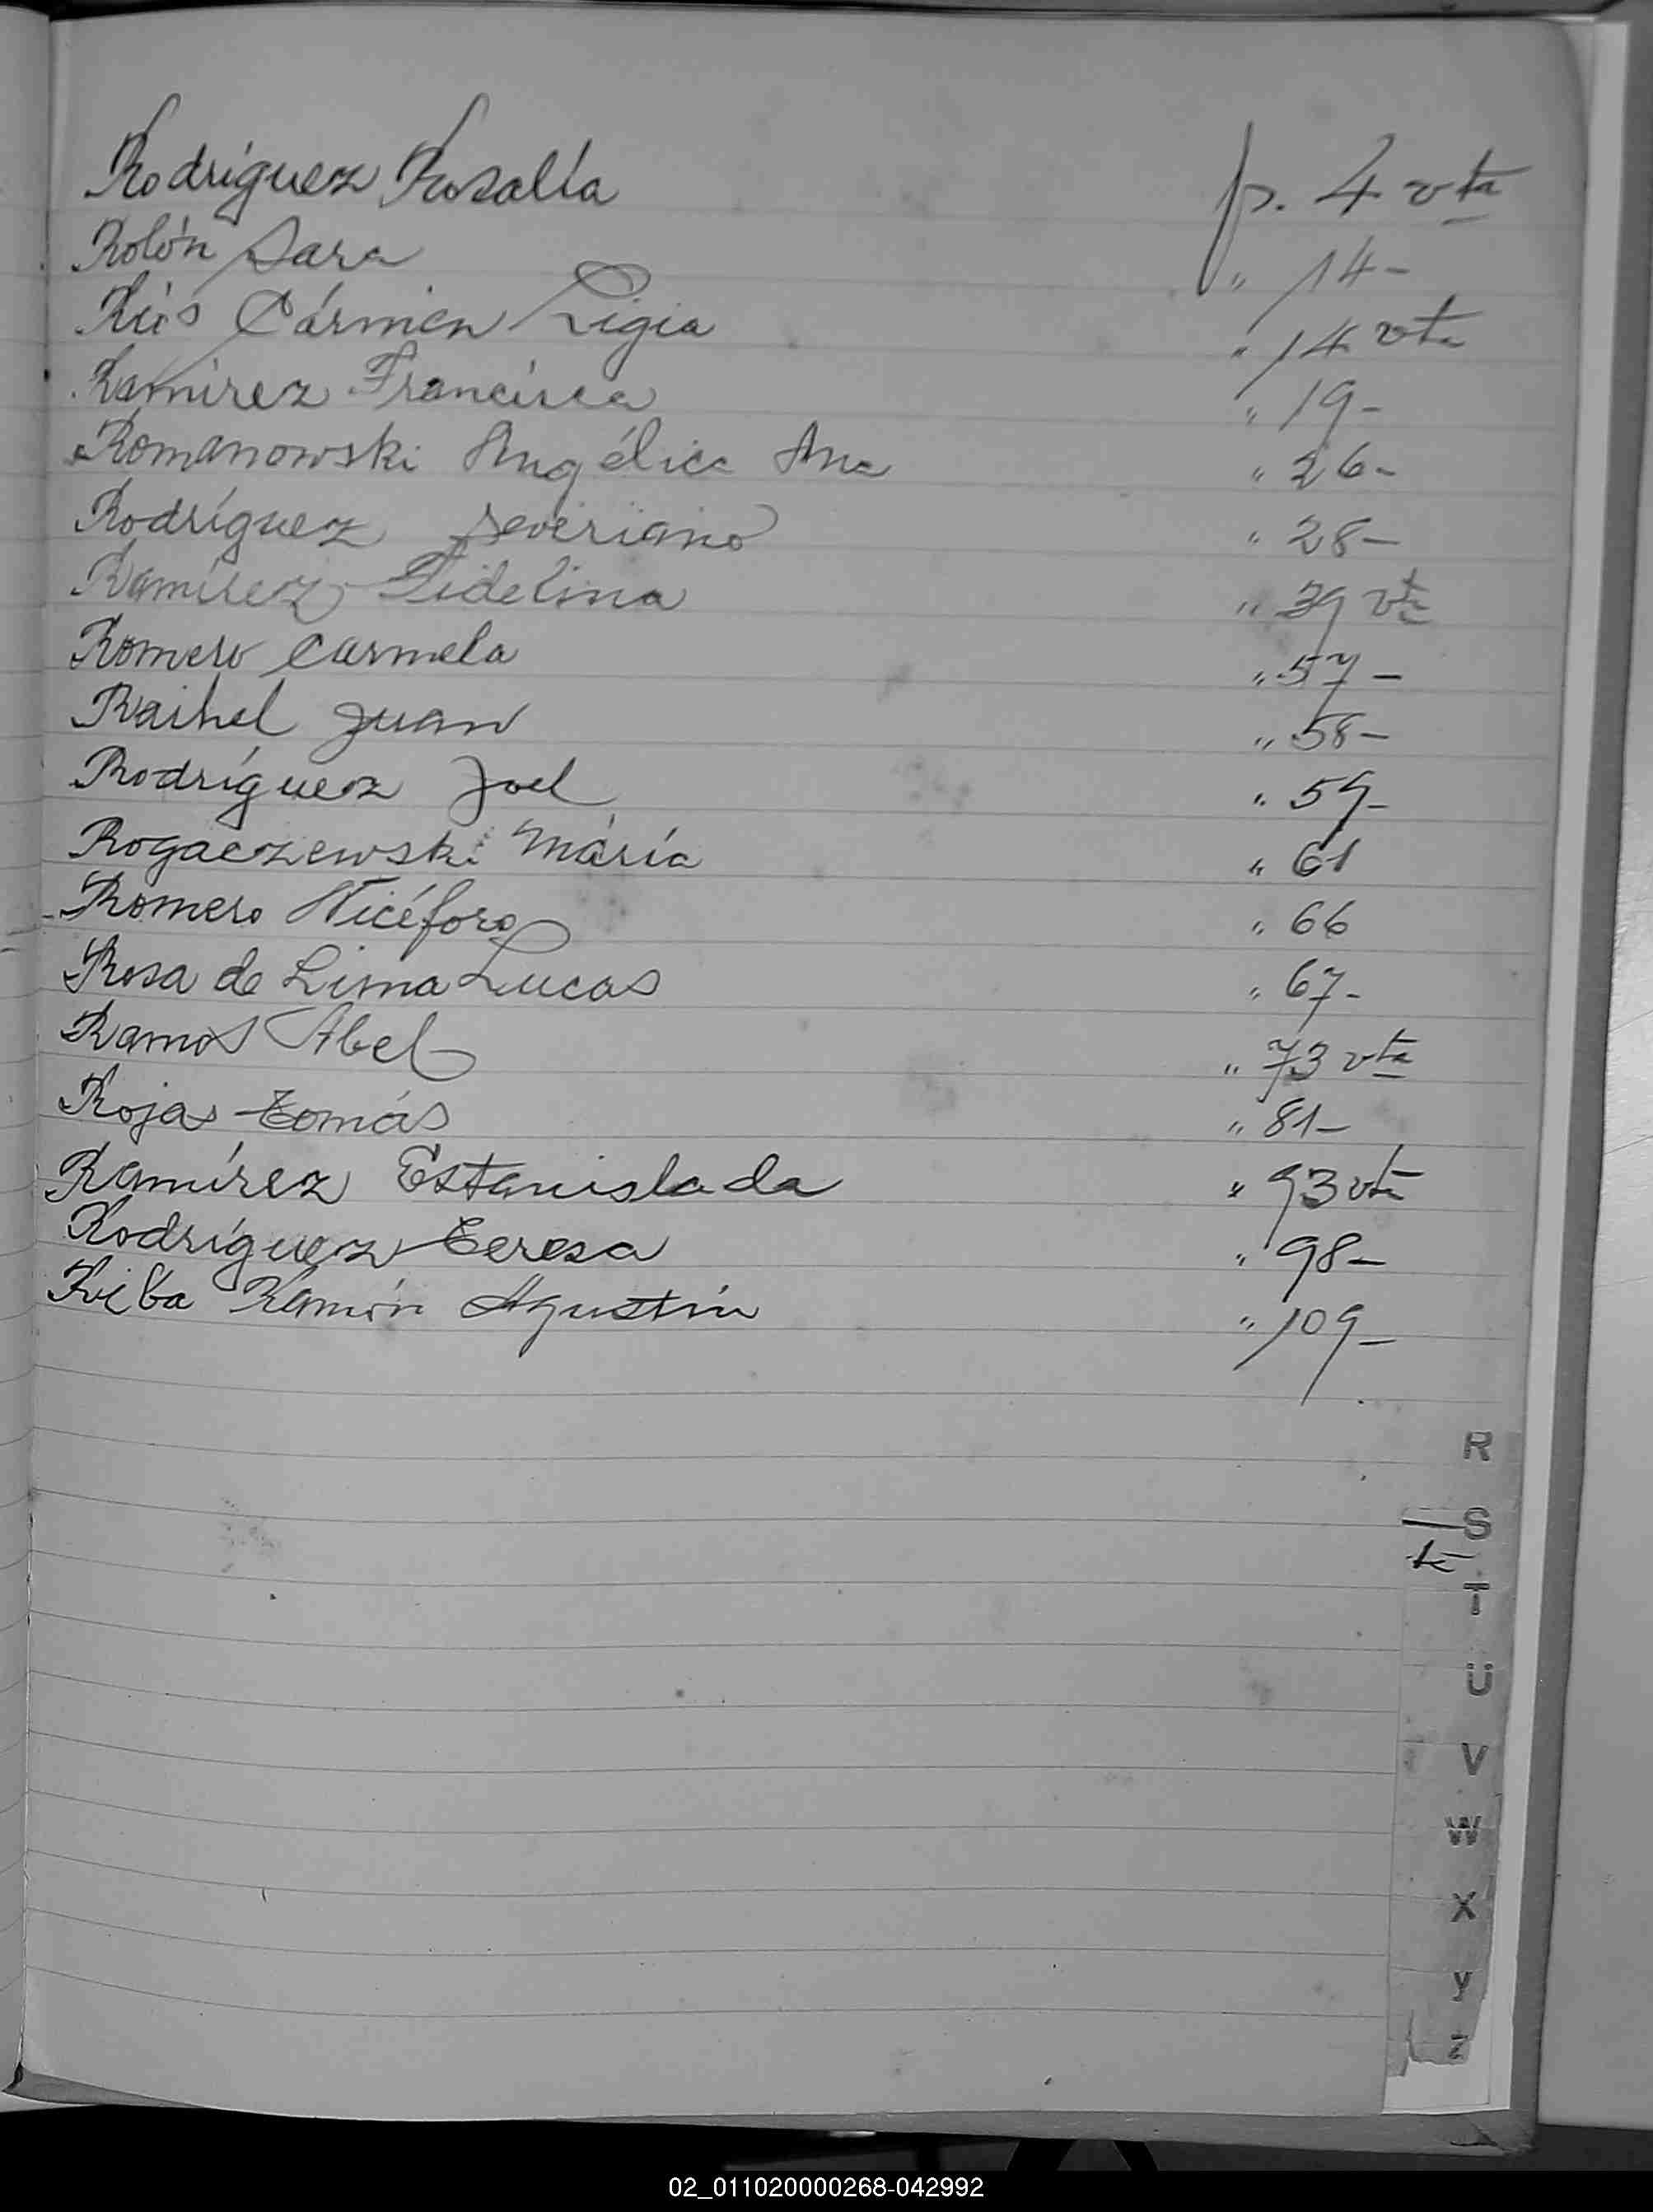 Rodríguez Rosalía p. 4 vta
Rolón Sara " 14-
Ríos Cármen Ligia " 14 vta
Ramírez Francisca " 19-
Romanowski Angélica Ana " 26-
Rodríguez Severiano " 28-
Ramírez Fidelina " 39 vta
Romero Carmela " 57-
Raihel Juan " 58-
Rodríguez Joel " 59-
Rogaczewski María " 61
Romero Nicéforo " 66
Rosa de Lima Lucas " 67-
Ramos Abel " 73 vta
Rojas Tomás " 81-
Ramírez Estanislada " 93 vta
Rodríguez Teresa " 98-
Ramón Agustín " 109-
R
S
T
U
V
W
X
Y
Z
02_011020000268-042992